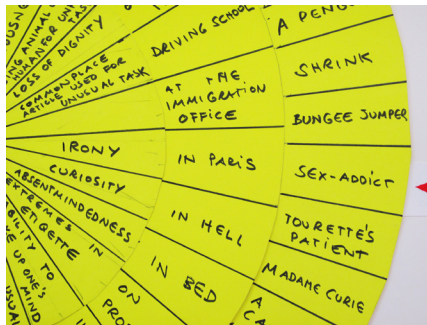 LOSS OF DIGNITY
COMMONPLACE
ARTICLE USED FOR
UNUSUAL TASK
IRONY
CURIOSITY
ABSENTMINDEDNESS
EXTREMES IN
ETIQUETTE
TO
UP ONE'S
MIND
DRIVING SCHOOL
AT THE
IMMIGRATION
OFFICE
IN PARIS
IN HELL
IN BED
ON
A
SHRINK
BUNGEE JUMPER
SEX-ADDICT
TOURETTE'S
PATIENT
MADAME CURIE
A